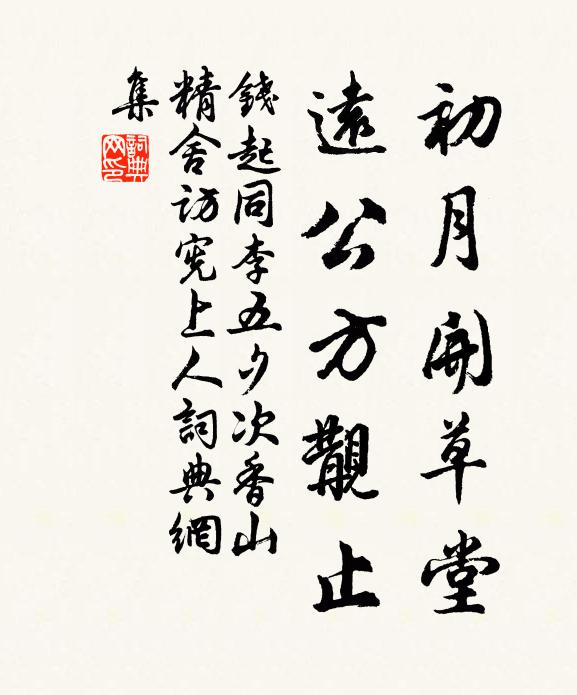 初月開草堂
遠公方觀止
錢起同李五夕次香山
精舍訪憲上人詞典網
集
詞典網印